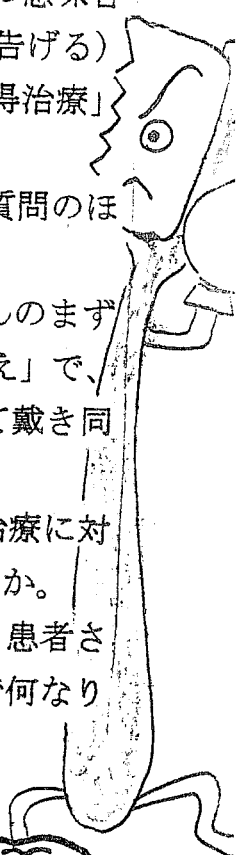 告げる)
得治療」
質問のほ
んのまず
え」で、
て戴き同
治療に対
か。
患者さ
何なり